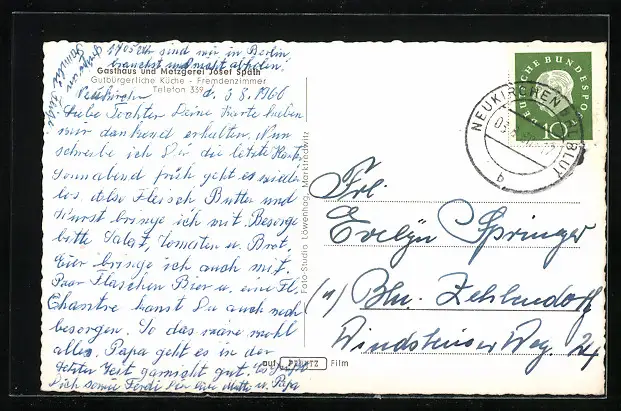 19.05 Uhr sind wir in Berlin
brauchst uns nicht abholen.
Gasthaus und Metzgerei Josef Späth
Gutbürgerliche Küche - Fremdenzimmer
Telefon 339
d. 3 8. 1966
Liebe Tochter Deine Karte haben
wir dankend erhalten. Nun
schreibe ich Dir die letzte Karte
Sonnabend früh geht es wieder
los also Fleisch Butter und
Wurst bringe ich mit. Besorge
bitte Salat, Tomaten u. Brot.
Eier bringe ich auch mit.
Paar Flaschen Bier u. eine Fl.
kanst Du auch noch
besorgen. So das wäre wohl
alles. Papa geht es in der
letzten Zeit garnicht gut. Es grüßt
Dich sowie Ferdi Mutti u. Papa
Foto-Studio Löwenhag, Marktredwitz
auf PERUTZ Film
DEUTSCHE BUNDESPOST
10
NEUKIRCHEN B HL BLUT
b
Frl.
Evelyn Springer
(1) Bln. Zehlendorf
Windsteiner Weg.